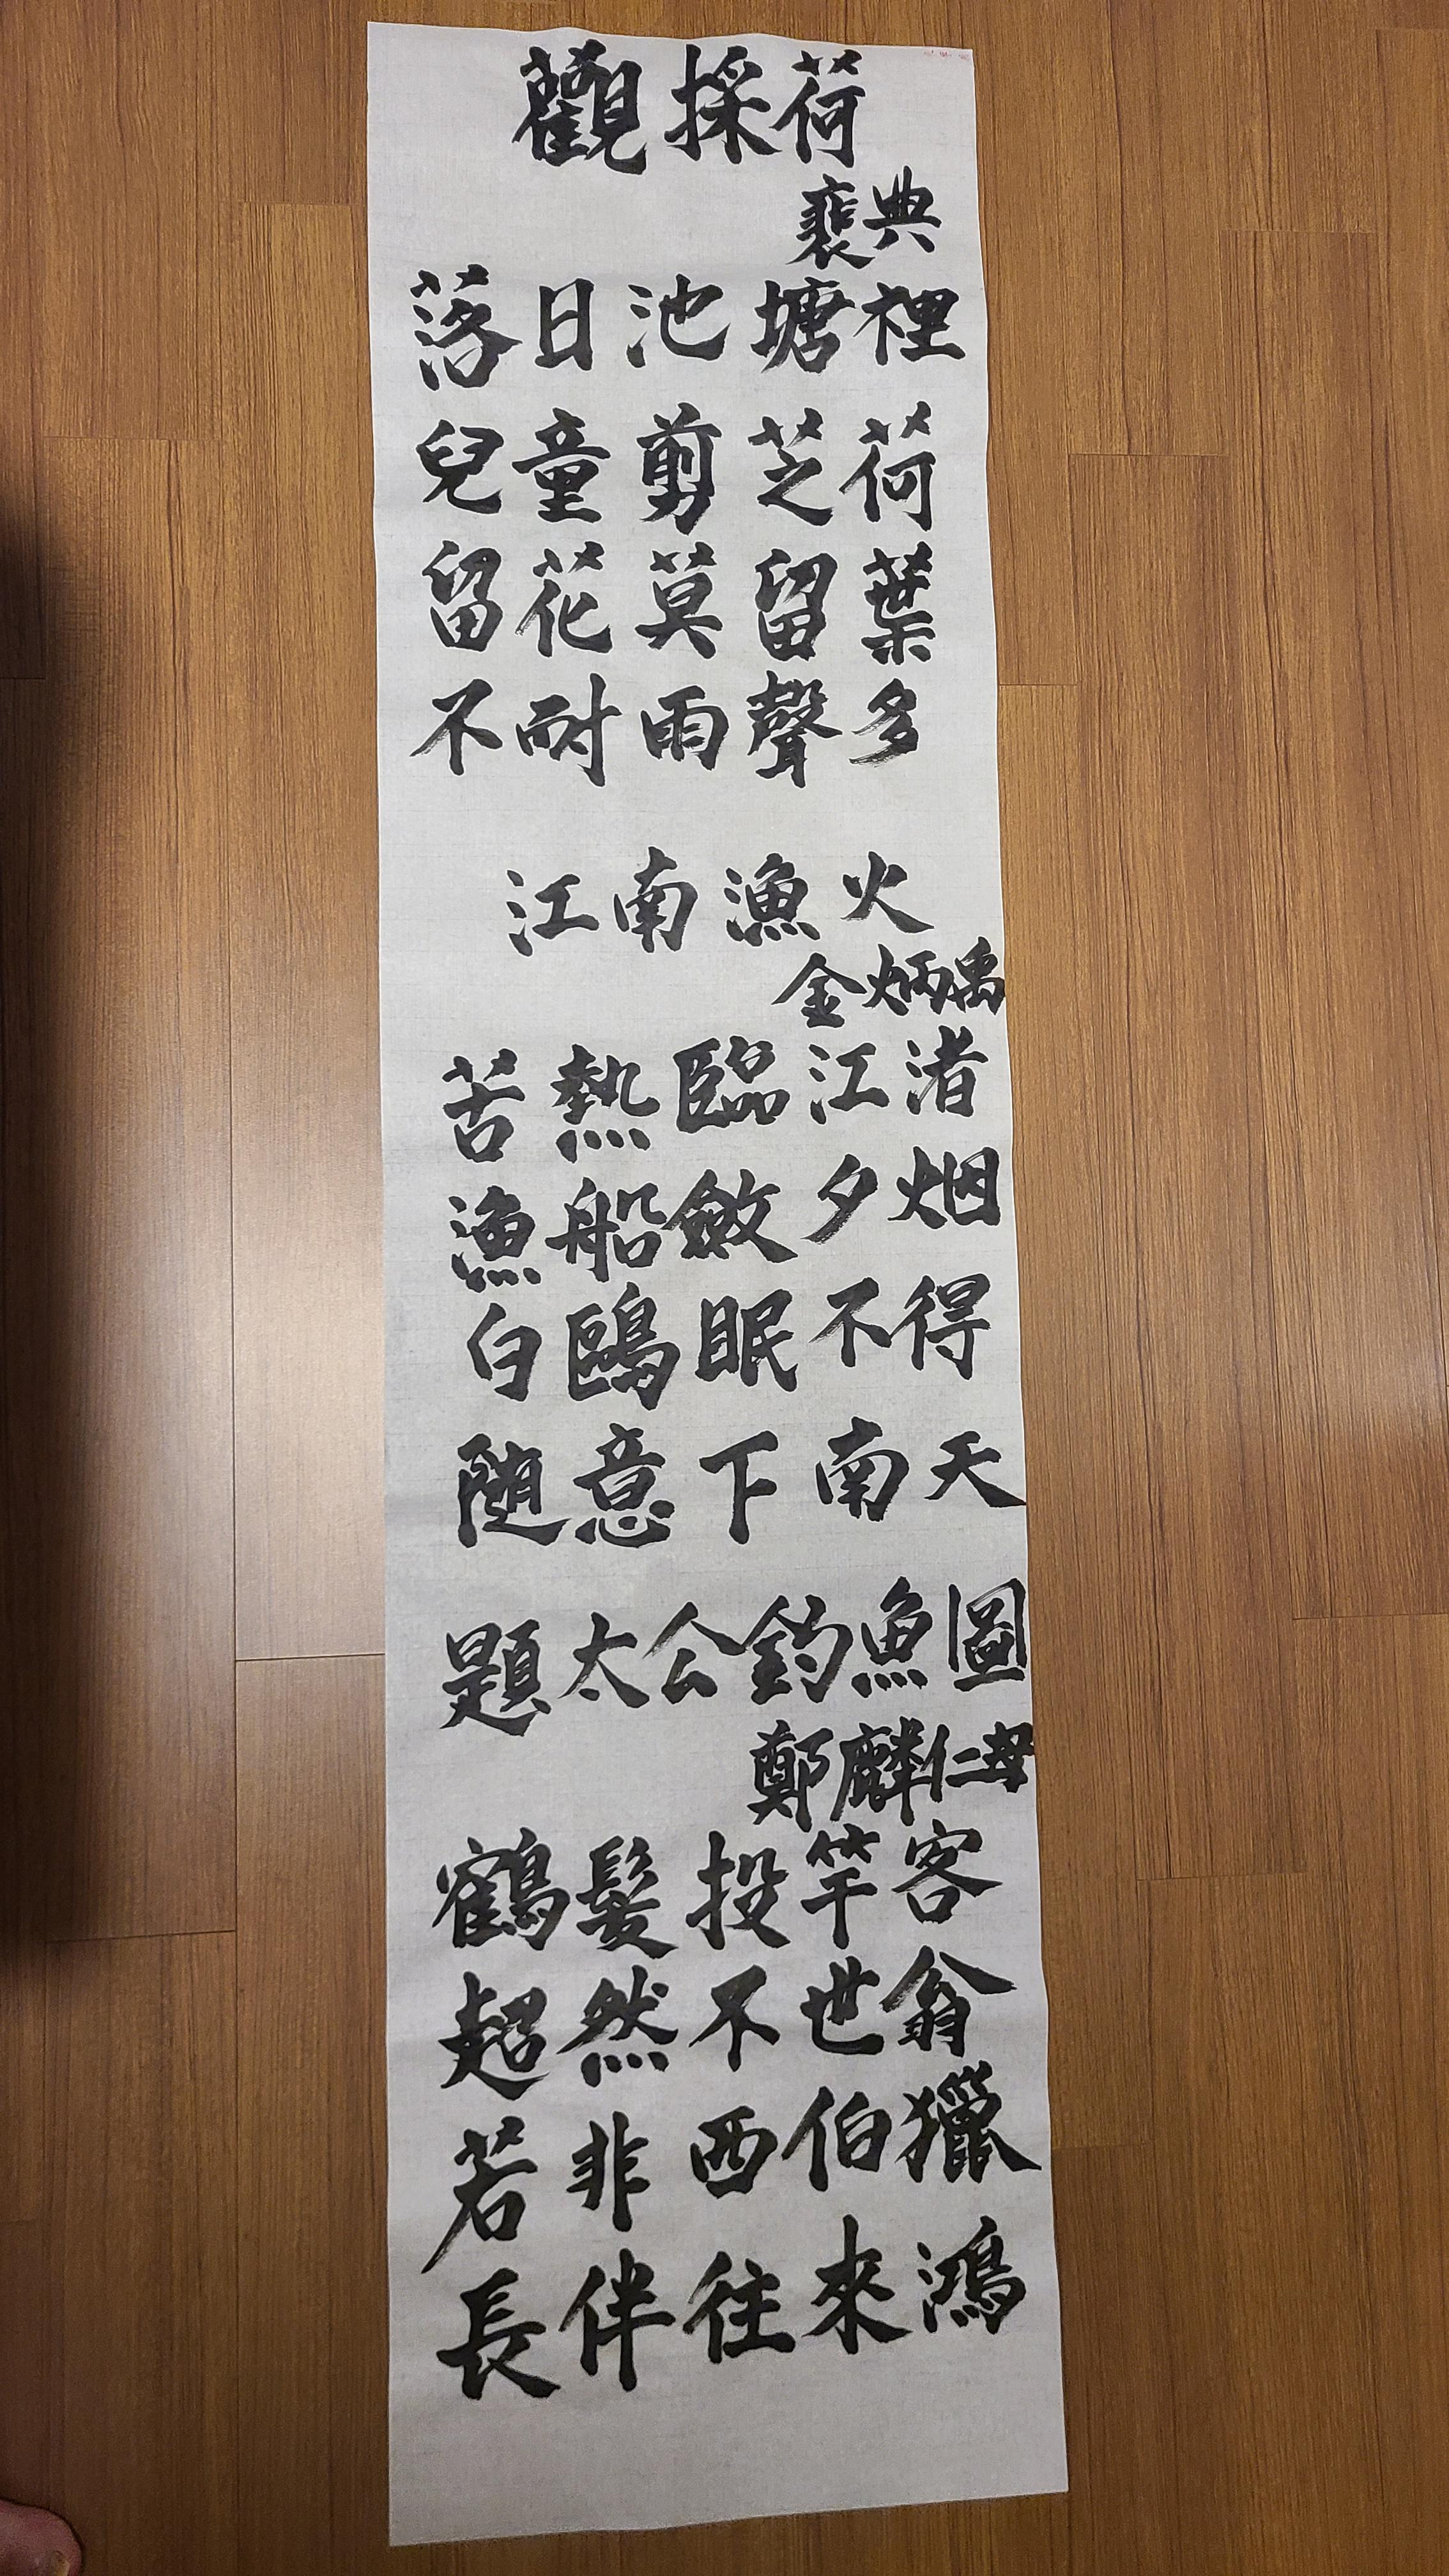 觀採荷
裵典
落日池塘裡
兒童剪芝荷
留花莫留葉
不耐雨聲多
江南漁火
金炳禹
苦熱臨江渚
漁船斂夕烟
白鷗眠不得
随意下南天
題太公釣魚圖
鄭麟仁母
鶴髮投竿客
超然不世翁
若非西伯獵
長伴往來鴻